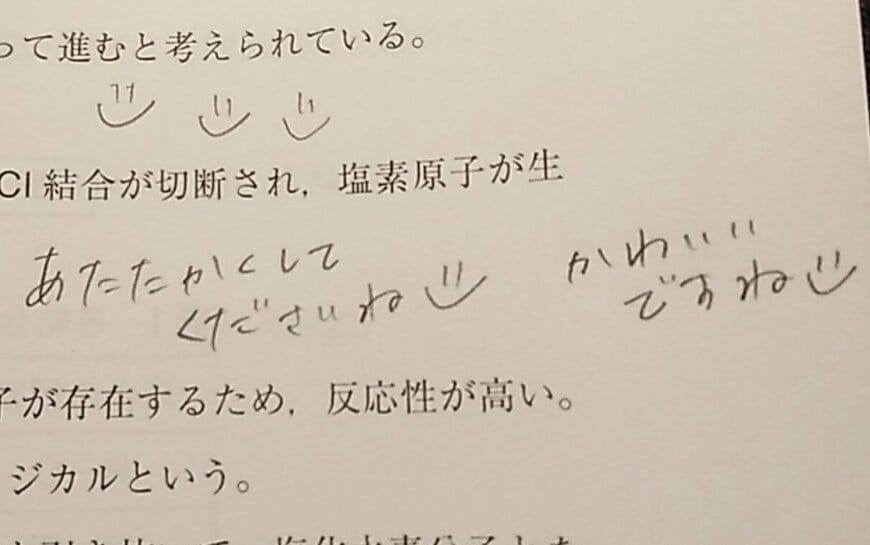 って進むと考えられている。
Cl 結合が切断され，塩素原子が生
あたたかくして
くださいね
かわいい
ですね
子が存在するため，反応性が高い。
ジカルという。